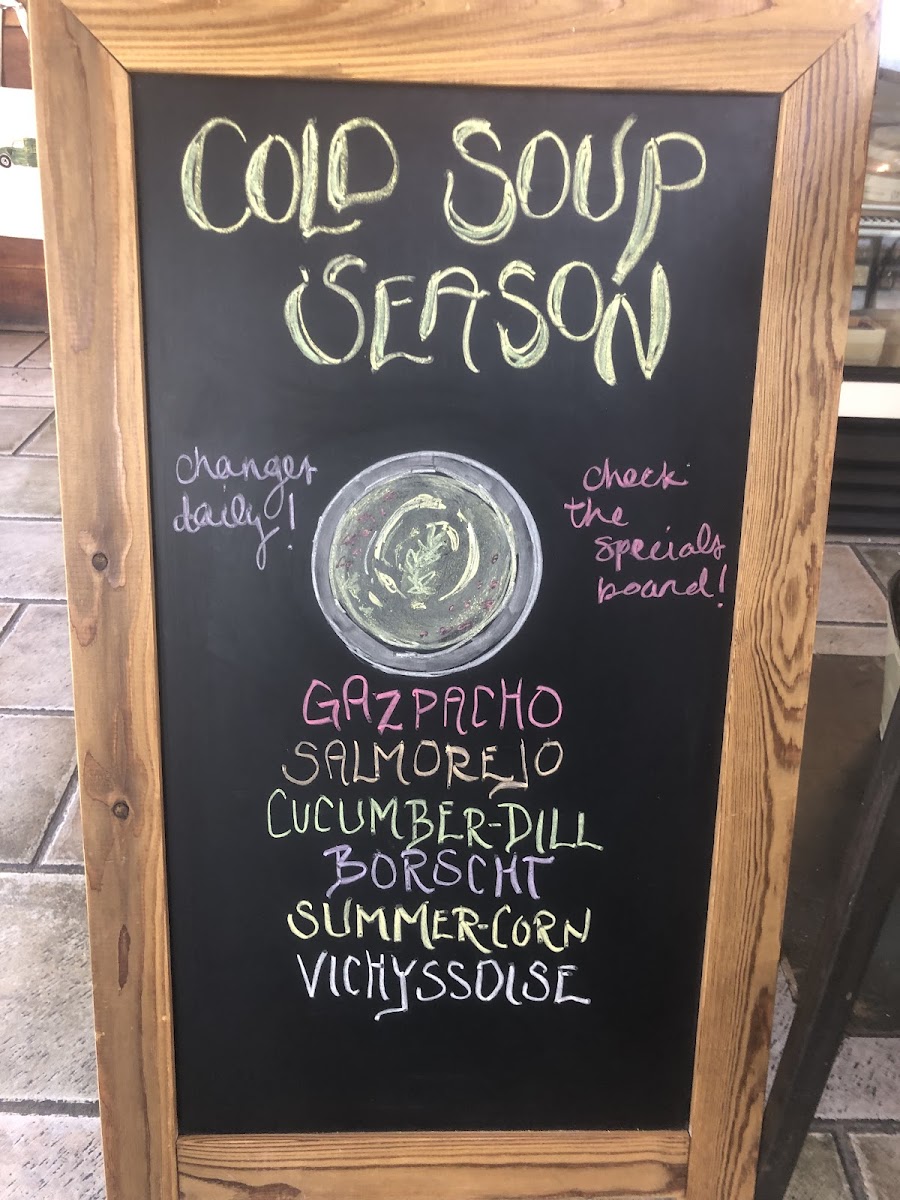 COLD SOUP
SEASON
changes
daily!
check
the
specials
board!
GAZPACHO
SALMOREJO
CUCUMBER-DILL
BORSCHT
SUMMER-CORN
VICHYSSOISE